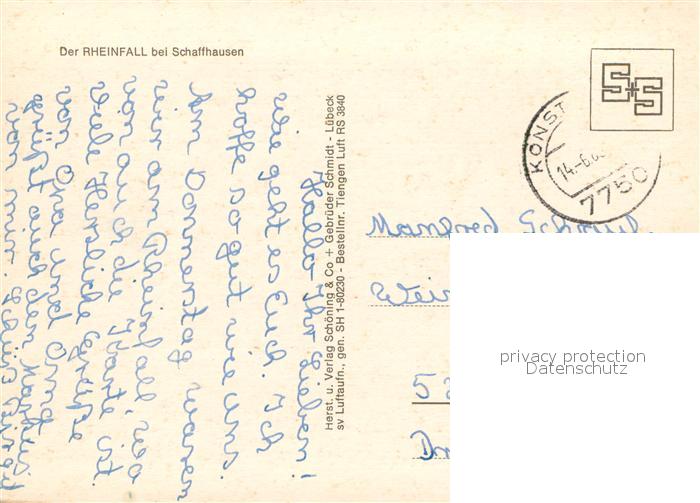 Der RHEINFALL bei Schaffhausen
Hallo Ihr Lieben!
wie geht es Euch. Ich
hoffe so gut wie uns.
Am Donnerstag waren
wir am Rheinfall wo
von auch die Karte ist
Viele Herzliche Grüße
von Oma und Oma
grüßt auch den Markus
von mir. Tschüß
Herst. u. Verlag Schöning & Co + Gebrüder Schmidt - Lübeck
sv Luftaufn., gen. SH 1-80230 - Bestellnr. Tiengen Luft RS 3840
S+S
KONST
14.-6.
7750
Manfred
5
privacy protection
Datenschutz